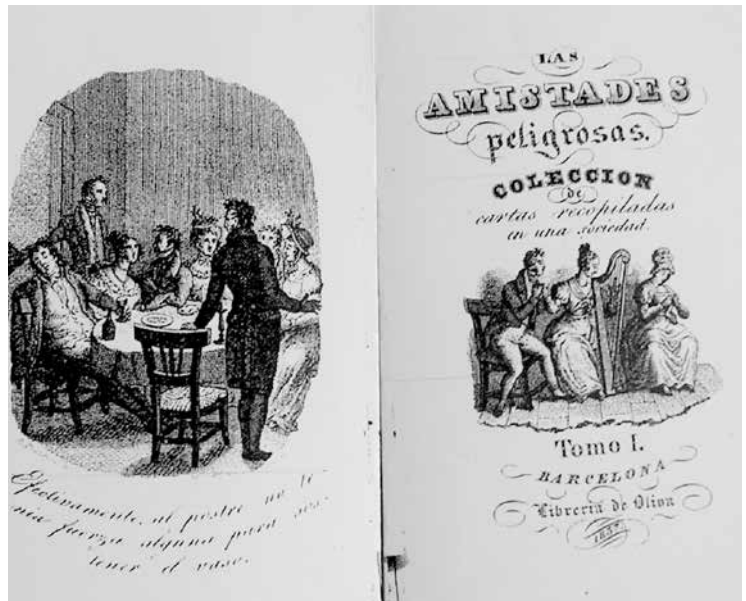 Efectivamente, al postre no te-
nia fuerza alguna para sos-
tener el vaso.
LAS
AMISTADES
peligrosas.
COLECCION
de
cartas recopiladas
en una sociedad.
Tomo I.
BARCELONA
Libreria de Oliva
1837.